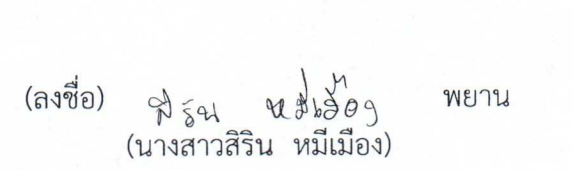 (ลงชื่อ) สิริน หมีเมือง พยาน
(นางสาวสิริน หมีเมือง)